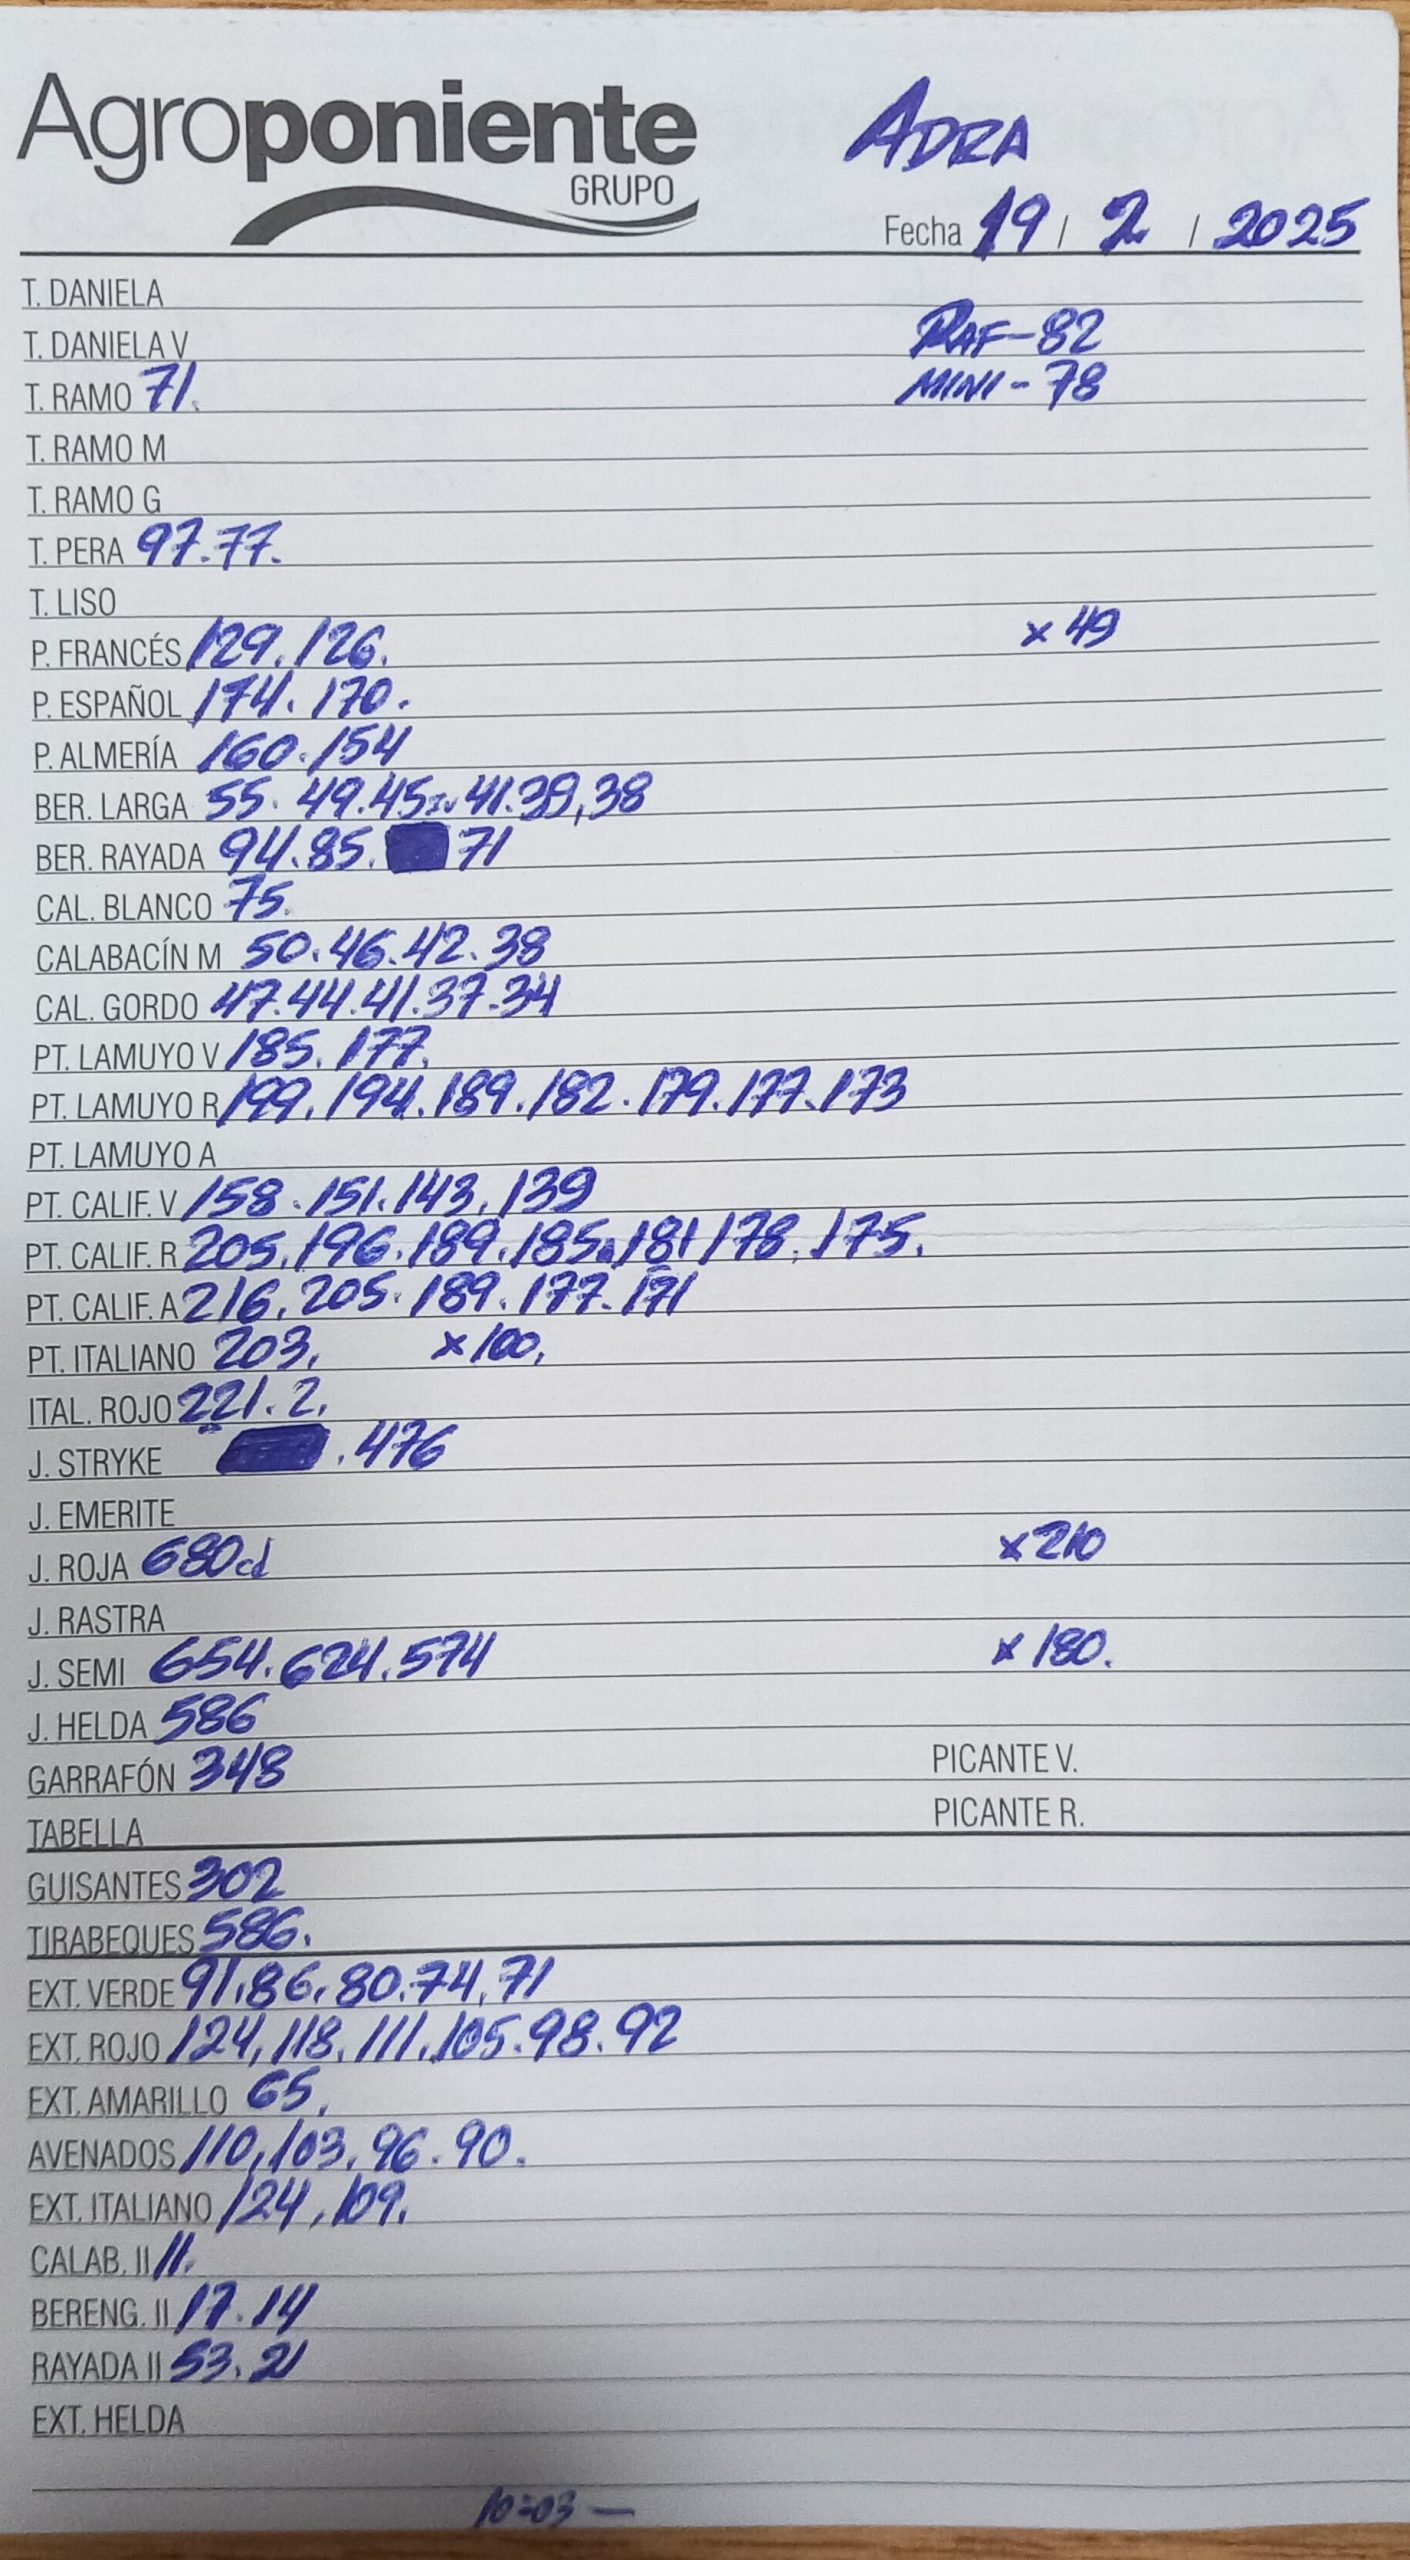 Agroponiente
GRUPO
ADRA
Fecha 19 / 2 / 2025
T. DANIELA
T. DANIELA V RAF-82
T. RAMO 71. MINI-78
T. RAMO M
T. RAMO G
T. PERA 97.77.
T. LISO
P. FRANCÉS 129.126. x 49
P. ESPAÑOL 174.170.
P. ALMERÍA 160.154
BER. LARGA 55.49.45 41.39,38
BER. RAYADA 94.85. 71
CAL. BLANCO 75.
CALABACÍN M 50.46.42.38
CAL. GORDO 47.44.41.37.34
PT. LAMUYO V 185.177.
PT. LAMUYO R 199.194.189.182.179.177.173
PT. LAMUYO A
PT. CALIF. V 158.151.143.139
PT. CALIF. R 205.196.189.185.181 178.175.
PT. CALIF. A 216.205.189.177.171
PT. ITALIANO 203, x 100,
ITAL. ROJO 221.2.
J. STRYKE .476
J. EMERITE
J. ROJA 680cd x 210
J. RASTRA
J. SEMI 654.624.574 x 180.
J. HELDA 586
GARRAFÓN 348 PICANTE V.
TABELLA PICANTE R.
GUISANTES 302
TIRABEQUES 586.
EXT. VERDE 91.86.80.74.71
EXT. ROJO 124,118.111.105.98.92
EXT. AMARILLO 65.
AVENADOS 110,103.96.90.
EXT. ITALIANO 124,109.
CALAB. II 11.
BERENG. II 17.14
RAYADA II 53.21
EXT. HELDA
10:03 —